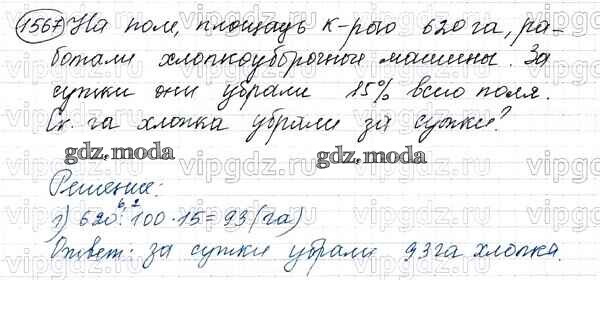 1567 На поле, площадь к-рого 620 га, ра-
ботали хлопкоуборочные машины. За
сутки они убрали 15% всего поля.
Ск. га хлопка убрали за сутки?
gdz.moda gdz.moda
Решение:
6,2
1) 620 : 100 · 15 = 93 (га)
Ответ: за сутки убрали 93 га хлопка.
vipgdz.ru